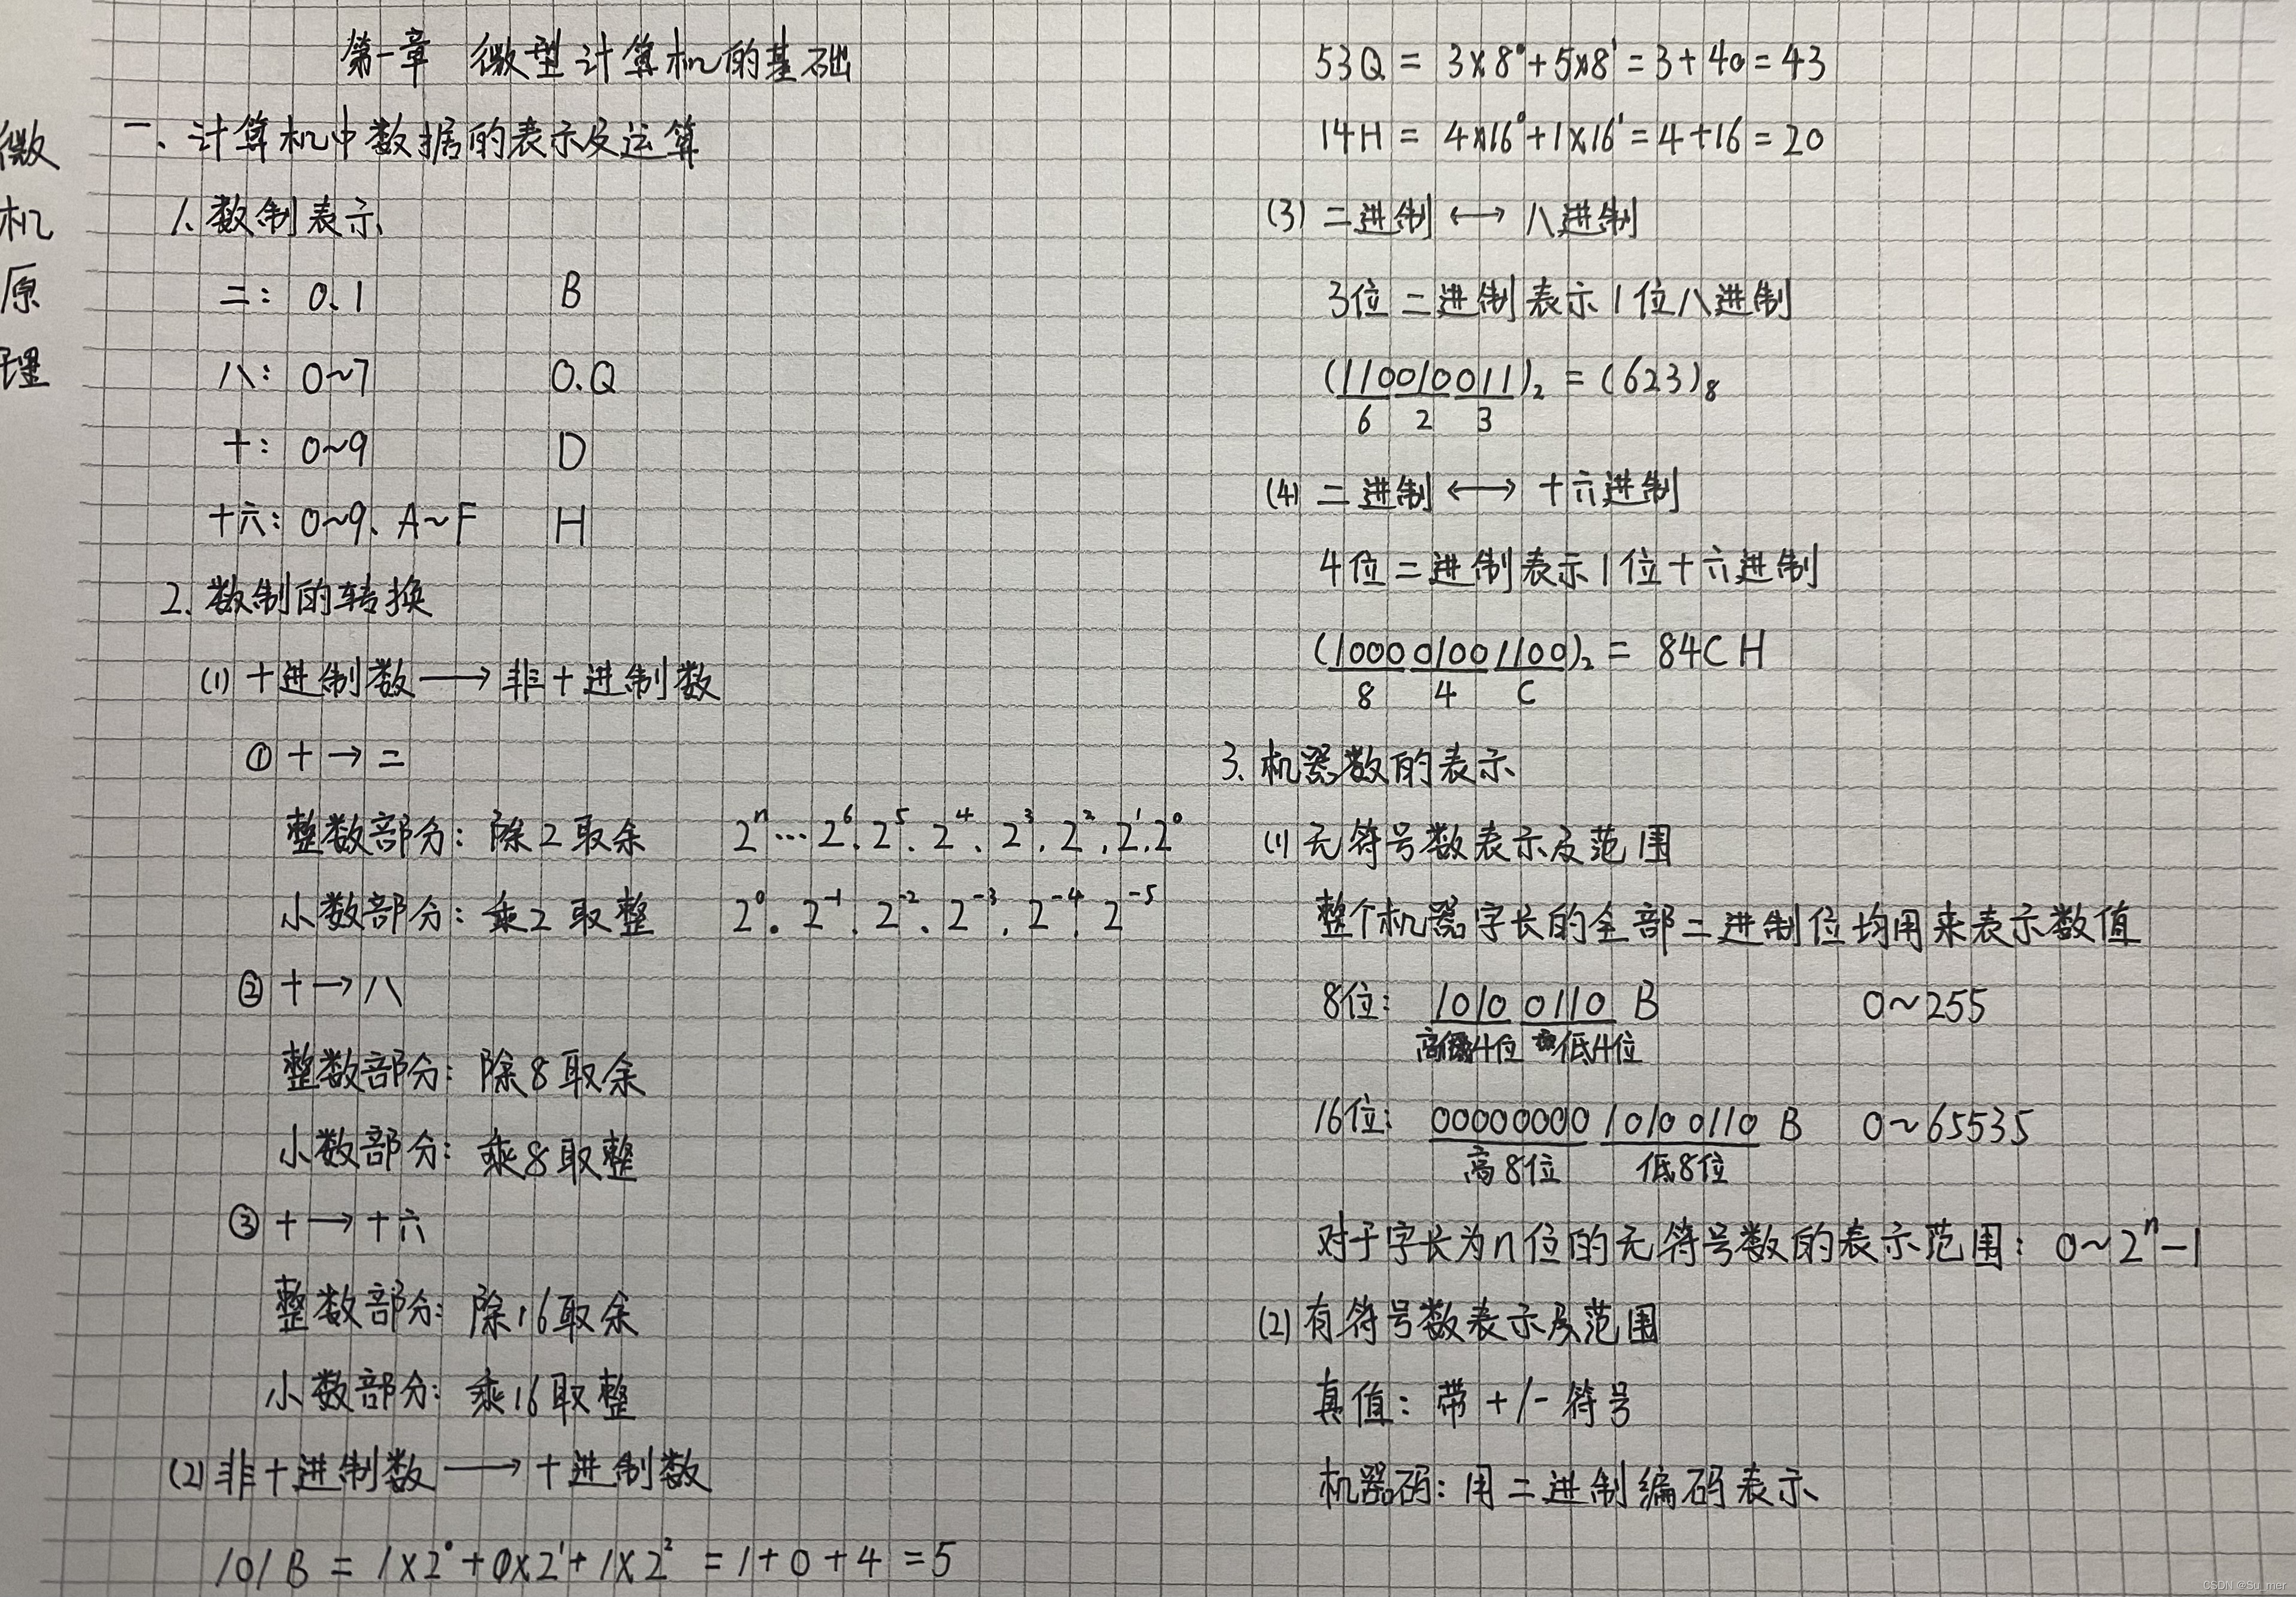 微机原理
第一章 微型计算机的基础
一、计算机中数据的表示及运算
1、数制表示
二: 0、1 B
八: 0~7 O、Q
十: 0~9 D
十六: 0~9、A~F H
2、数制的转换
(1) 十进制数 → 非十进制数
① 十 → 二
整数部分: 除2取余 2ⁿ…2⁶、2⁵、2⁴、2³、2²、2¹、2⁰
小数部分: 乘2取整 2⁰. 2⁻¹、2⁻²、2⁻³、2⁻⁴、2⁻⁵
② 十 → 八
整数部分: 除8取余
小数部分: 乘8取整
③ 十 → 十六
整数部分: 除16取余
小数部分: 乘16取整
(2) 非十进制数 → 十进制数
101B = 1×2⁰+0×2¹+1×2² = 1+0+4 = 5
53Q = 3×8⁰+5×8¹ = 3+40 = 43
14H = 4×16⁰+1×16¹ = 4+16 = 20
(3) 二进制 ↔ 八进制
3位二进制表示1位八进制
(110010011)₂ = (623)₈
6 2 3
(4) 二进制 ↔ 十六进制
4位二进制表示1位十六进制
(100001001100)₂ = 84CH
8 4 C
3、机器数的表示
(1) 无符号数表示及范围
整个机器字长的全部二进制位均用来表示数值
8位: 1010 0110 B 0~255
高4位 低4位
16位: 00000000 1010 0110 B 0~65535
高8位 低8位
对于字长为n位的无符号数的表示范围: 0~2ⁿ-1
(2) 有符号数表示及范围
真值: 带+/-符号
机器码: 用二进制编码表示
CSDN @Su_mer